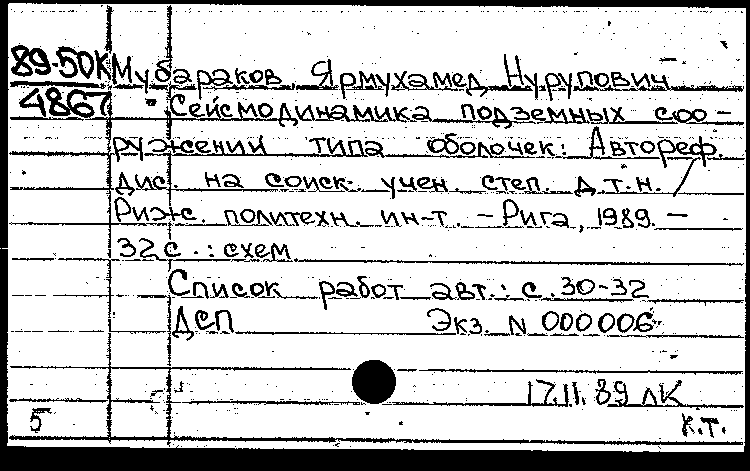 89-50К Мубараков, Ярмухамед Нурупович
4867 Сейсмодинамика подземных соо-
ружений типа оболочек: Автореф.
дис. на соиск. учен. степ. д.т.н. /
Риж. политехн. ин-т. - Рига, 1989. -
32с. : схем
Список работ авт.: с. 30-32
ДСП Экз. N 000006
17.11.89 лК
5 К.Т.